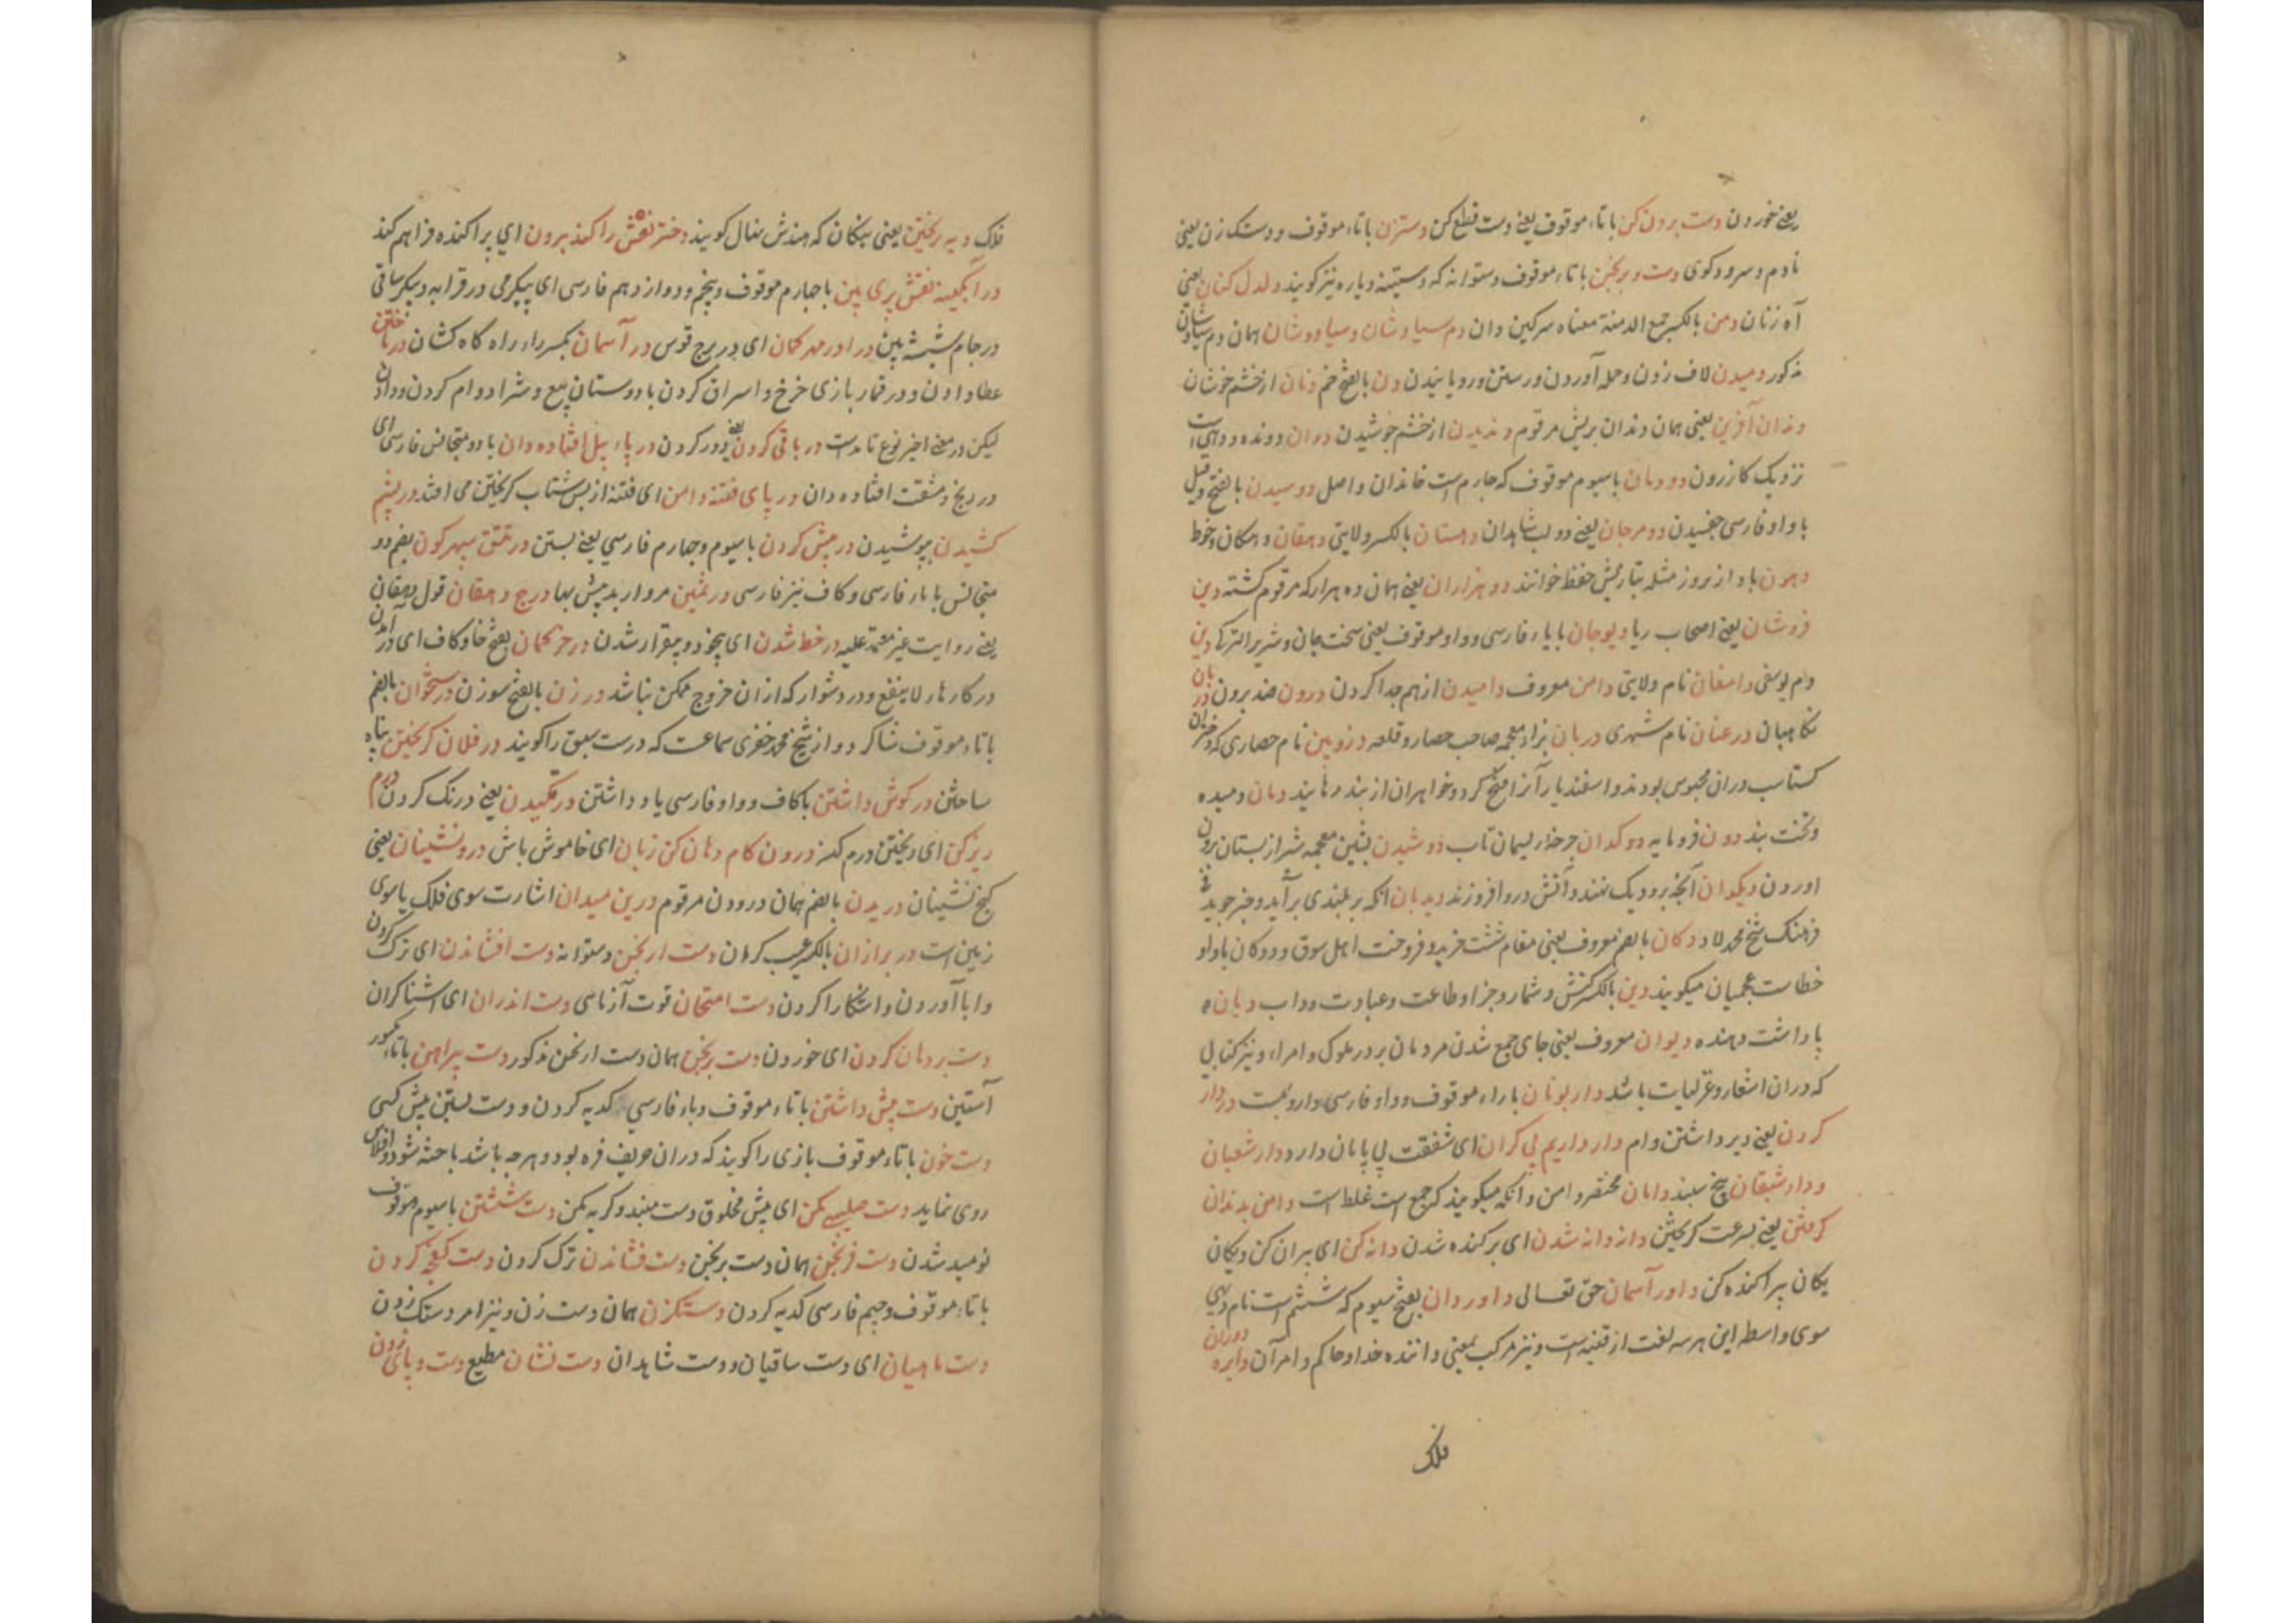 یعنی خوردن دست برون کن باتاء موقوف یعنی دست قطع کن دستزن باتاء موقوف و دستک زن یعنی
نادم و سرود کوی دست و برنجن باتاء موقوف دستوانه که دستینه و یاره نیز کویند دلدل کنان یعنی
آه زنان دمن بالکسر جمع الدمنة معناه سرکین دان دم سیاوشان و سیاووشان همان دم سیاوشان
مذکور دمیدن لاف زدن و حمله آوردن و رستن و رویانیدن دن بالفتح خم دنان از خشم جوشان
دندان آفرین یعنی همان دندان بریش مرقوم دندیدن از خشم جوشیدن دوان دونده و دهی است
نزدیک کازرون دودمان باسیوم موقوف که چارم است خاندان و اصل دوسیدن بالفتح و قیل
با واو فارسی چفسیدن دو مرجان یعنی دو لب شاهدان دهستان بالکسر ولایتی دهقان
دهون باد از بروز مثله بتازیش حفظ خوانند دو هزاران یعنی همان ده هزار که مرقوم کشته دین
فروشان یعنی اصحاب ریا دیوجان بایاء فارسی و واو موقوف یعنی سخت جان و شریر دین
دام یوسفی دامغان نام ولایتی دامن معروف دامیدن از هم جدا کردن درون ضد برون دربان
نکاهبان درعنان نام شهری دزبان بزاء معجمه صاحب حصار و قلعه دز روبین نام حصاری که دختران
کستاسب دران محبوس بودند و اسفندیار آنرا فتح کرد و خواهران از بند رهانید دمان دمیده
و تخت بند دون فرومایه دوکدان چرخه ریسمان تاب دوشیدن بشین معجمه شیر از پستان برون
اوردن دیکدان آنچه برو دیک نهند و آتش درو افروزند دیدبان انکه بر بلندی برآید و خبر جوید فی
فرهنک شیخ محمد لاد دکان بالضم معروف یعنی مقام نشست خرید و فروخت اهل سوق و دوکان باواو
خطاست عجمیان میکویند دین بالکسر کیش و شمار و جزا و طاعت و عبادت و داب دیان
پاداشت دهنده دیوان معروف یعنی جای جمع شدن مردمان بر در ملوک و امراء و نیز کتابی
که دران اشعار و غزلیات باشد دار بونان باراء موقوف و واو فارسی داروئیست در دار
کردن یعنی دیر داشتن وام دار داریم بی کران ای شفقت بی پایان دارد دار شعبان
و دار شیقان پنج سبند دامان مختصر دامن و انکه میکویند که جمع است غلط است دامن بدندان
کرفتن یعنی بسرعت کریختن دانه دانه شدن ای پرکنده شدن دانه کن ای پران کن و یکان
یکان پراکنده کن داور آسمان حق تعالی داوردان بفتح سیوم که ششم است نام دیهی
سوی واسطه این هر سه لغت از قنیه است و نیز مرکب بمعنی داننده خدا و حاکم و امر آن دایره دوران
فلک
فلک دیه ریختن یعنی پیکان که هندش بنال کویند دختر نعش را کند برون ای پراکنده فراهم کند
در آبکینه نقش پری بین باچارم موقوف و پنجم و دوازدهم فارسی ای پیکر می در قرابه و پیکر ساقی
در جام شیشه بین در اور مهر کمان ای در برج قوس در آسمان بکسر راء راه کاه کشان درباختن
عطا دادن و در قمار بازی خرج و اسراف کردن با دوستان بیع و شرا دوام کردن و دادن
لیکن در معنی اخیر نوع تامست در باقی کردن یعنی دور کردن در پاء پیل افتاده دان با دو متجانس فارسی ای
در رنج و مشقت افتاده دان در پای فتنه دامن ای فتنه از بس شتاب کریختن می افتد در پشم
کشیدن پوشیدن در پیش کردن باسیوم و چهارم فارسی یعنی بستن در تتق سپهر کون بضم دو
متجانس باباء فارسی و کاف نیز فارسی در ثمین مروارید بیش بها درج دهقان قول دهقان
یعنی روایت غیر معتمد علیه در خط شدن ای بیخود و بیقرار شدن در خر کمان بفتح خا و کاف ای در آمدن
در کارهاء لاینفع و در دشوار که از ان خروج ممکن نباشد در زن بالفتح سوزن در ستخوان بالضم
باتاء موقوف شاکرد و از شیخ محمد خضری سماعست که درست سبق را کویند در فلان کریختن پناه
ساختن در کوش داشتن باکاف و واو فارسی یاد داشتن درنکیدن یعنی درنک کردن درم
ریز کن ای ریختن درم کن درون کام دهان کن زبان ای خاموش باش درونشینان یعنی
کنج نشینان دریدن بالضم همان درودن مرقوم درین میدان اشارت سوی فلک یا سوی
زمین است در برازان بالکسر عیب کرمان دست ارنجن دستوانه دست افشاندن ای ترک کردن
و ابا آوردن و اشکارا کردن دست امتحان قوت آزمای دست اندران ای اشناکران
دست بر دهان کردن ای خوردن دست برنجن همان دست ارنجن مذکور دست پیراهن باتاء مکسور
آستین دست پیش داشتن باتاء موقوف و باء فارسی کدیه کردن و دست بستن پیش کسی
دست خون باتاء موقوف بازی را کویند که دران حریف فره بود و هرچه باشد باخته شود و افلاس
روی نماید دست صلیبی مکن ای پیش مخلوق دست مبند و کریه مکن دست شستن باسیوم موقوف
نومید شدن دست فرنجن همان دست برنجن دست فشاندن ترک کردن دست کفچه کردن
باتاء موقوف و جیم فارسی کدیه کردن دستکزن همان دست زن و نیز امر دستک زدن
دست ماهیان ای دست ساقیان و دست شاهدان دست نشان مطیع دست و پا زدن